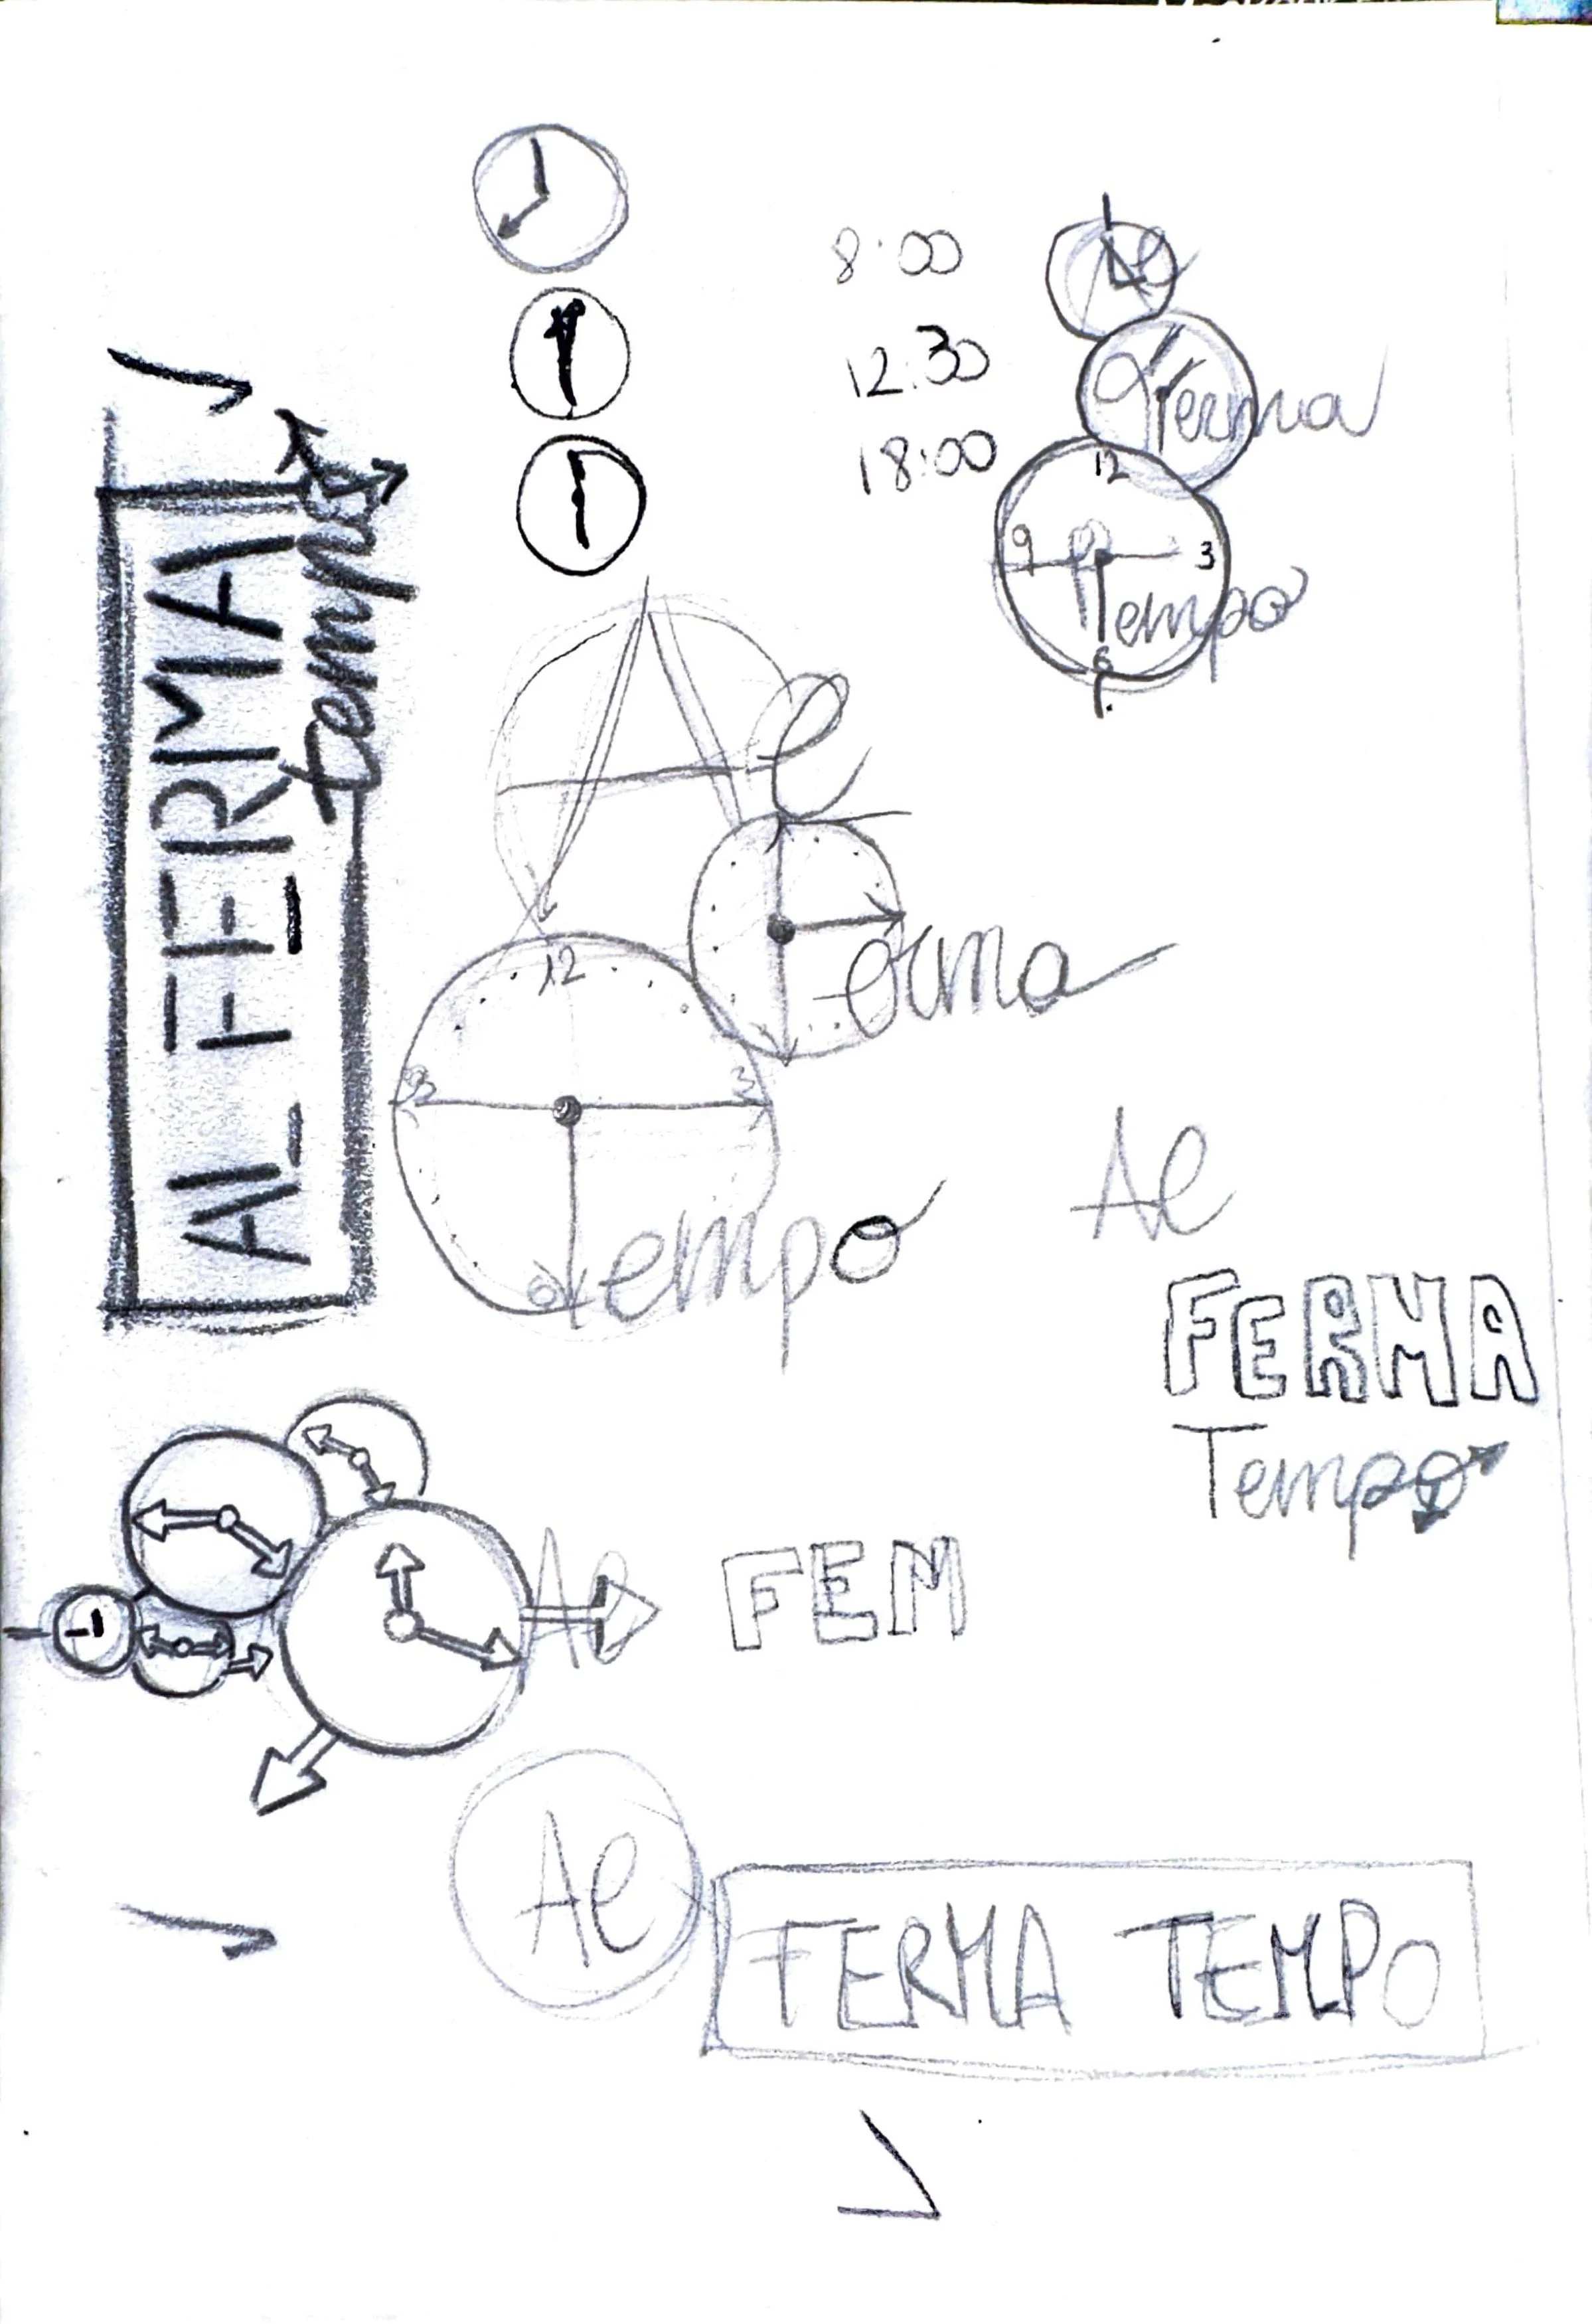 8:00
12:30
18:00
Al
Ferma
12
9
3
6
Tempo
AL FERMA
tempo
Al
erma
12
3
6
tempo
Al
FERMA
Tempo
Al
FEM
Al
FERMA TEMPO